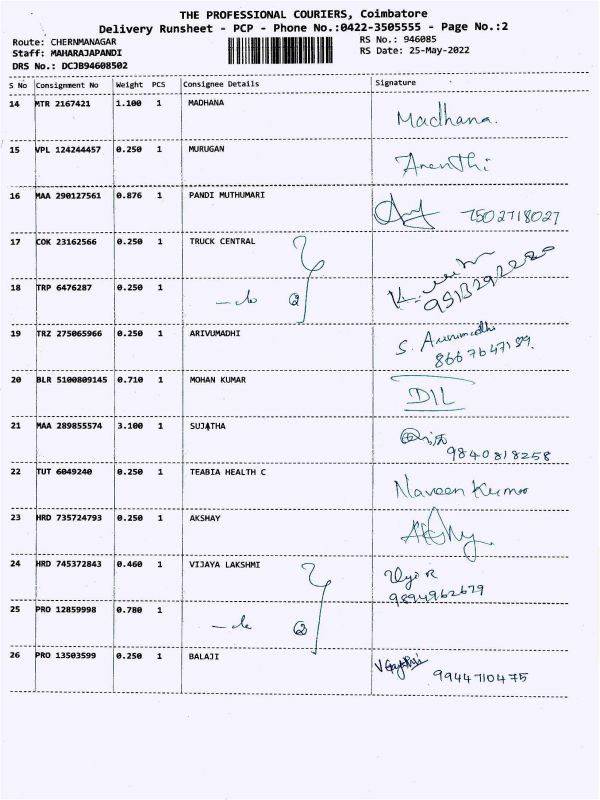 THE PROFESSIONAL COURIERS, Coimbatore
Delivery Runsheet - PCP - Phone No.:0422-3505555 - Page No.:2
Route: CHERNMANAGAR
RS No.: 946085
Staff: MAHARAJAPANDI
RS Date: 25-May-2022
DRS No.: DCJB94608502
S No Consignment No Weight PCS Consignee Details Signature
14 MTR 2167421 1.100 1 MADHANA Madhana.
15 VPL 124244457 0.250 1 MURUGAN Ananthi
16 MAA 290127561 0.876 1 PANDI MUTHUMARI 7502718027
17 COK 23162566 0.250 1 TRUCK CENTRAL
18 TRP 6476287 0.250 1 -do ②
19 TRZ 275065966 0.250 1 ARIVUMADHI S.
20 BLR 5100809145 0.710 1 MOHAN KUMAR DIL
21 MAA 289855574 3.100 1 SUJATHA
9840818258
22 TUT 6049240 0.250 1 TEABIA HEALTH C Naveen Kumar
23 HRD 735724793 0.250 1 AKSHAY Akshy.
24 HRD 745372843 0.460 1 VIJAYA LAKSHMI
9894962679
25 PRO 12859998 0.780 1 -do ②
26 PRO 13503599 0.250 1 BALAJI 9944710475